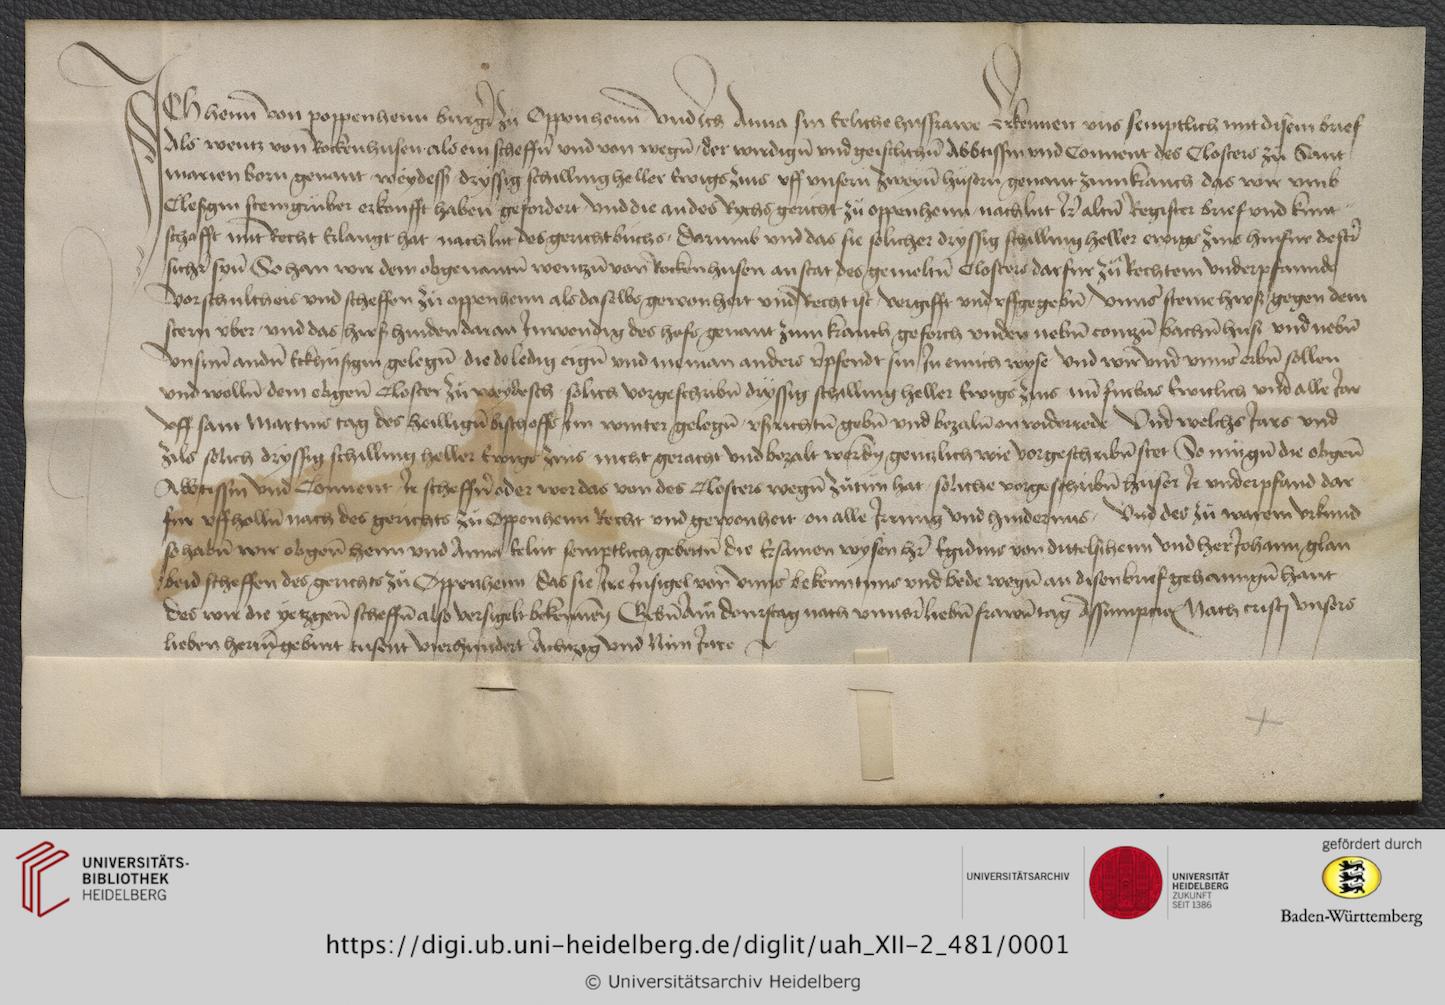 Ich henn von poppenheim burger zu Oppenheim Und Ich Anna sin Eeliche hussfrawe Erkennen uns semptlich mit disem brief
Als wentz von Rockenhusen als ein scheffen und von wegen der wirdigen und geistlichen Abbtissin und Convent des Closters zu Sant
marien born genant weydess dryssig schilling heller Ewigs zins uff unsern zweyen husern genant zum kranch das wir umb
Cleßgin steingruber erkoufft haben gefordert und die an des Rychs gericht zu oppenheim nach lut Ir alten Register brief und kunt
schafft mit Recht Erlangt hat nach lut des gericht buchs Darumb und das sie solicher dryssig schilling heller ewigs zins hinfur dester
sicher syen So han wir dem obgenanten wentzen von Rockenhusen an stat des gemelten Closters darfur zu Rechtem underpfannde
vor schultheis und scheffen zu oppenheim als daselbs gewonheit und Recht ist vergifft und uffgegeben unnser steine hwß gegen dem
stern uber und das hwß hinden daran Inwendig des hofs genant zum kranch geforch und neben contzen bachen huß und neben
unserm andern Eckhusgin gelegen die do ledig eigen und nieman anders verpfendt sin In einich wyse Und wir und unnser erben sollen
und wollen dem obgenanten Closter zu weydesch solich vorgeschriben dryssig schilling heller Ewigs zins nu furbas Ewiclich und alle Jar
uff sant Martins tag des heilligen bischoffs Im winter gelegen ußrichten geben und bezalen on widerrede Und welchs Jars und
zils solich dryssig schilling heller Ewigs zins nicht geracht und bezalt werden gentzlich wie vorgeschriben stet So mugen die obgenanten
Abbtissin und Convent Ir scheffener oder wer das von des Closters wegen zutun hat soliche vorgeschriben huser Ir underpfand dar
fur uffhollen nach des gerichts zu Oppenheim Recht und gewonheit on alle Irrung und hindernus Und des zu warem urkund
so haben wir obgenanten henn und Anna Elut semptlich gebetten die Ersamen wysen her Egidius von dittelßheim und her Johann glan
beid scheffen des gerichts zu Oppenheim das sie Ire Insigel von unnser bekenntnus und bede wegen an disen brief gehanngen hant
Des wir die yetzgenanten scheffen also versigelt bekennen Geben Am donrstag nach unnser lieben frawen tag Assumptionis Nach cristi unsers
lieben herren geburt tusent vierhundert Achtzig und Nun Jare
UNIVERSITÄTS-
BIBLIOTHEK
HEIDELBERG
UNIVERSITÄTSARCHIV
UNIVERSITÄT
HEIDELBERG
ZUKUNFT
SEIT 1386
gefördert durch
Baden-Württemberg
https://digi.ub.uni-heidelberg.de/diglit/uah_XII-2_481/0001
© Universitätsarchiv Heidelberg